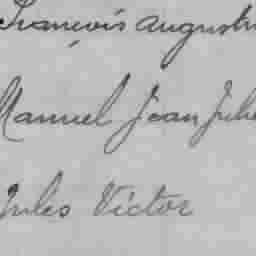 François Augustin
Manuel Jean Jules
Jules Victor